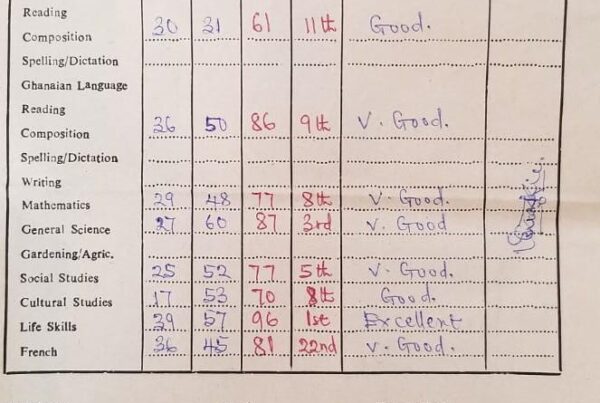 Reading
Composition 30 31 61 11th Good.
Spelling/Dictation
Ghanaian Language
Reading
Composition 36 50 86 9th V. Good.
Spelling/Dictation
Writing
Mathematics 29 48 77 8th V. Good.
General Science 27 60 87 3rd V. Good
Gardening/Agric.
Social Studies 25 52 77 5th V. Good.
Cultural Studies 17 53 70 8th Good.
Life Skills 39 57 96 1st Excellent
French 36 45 81 22nd V. Good.